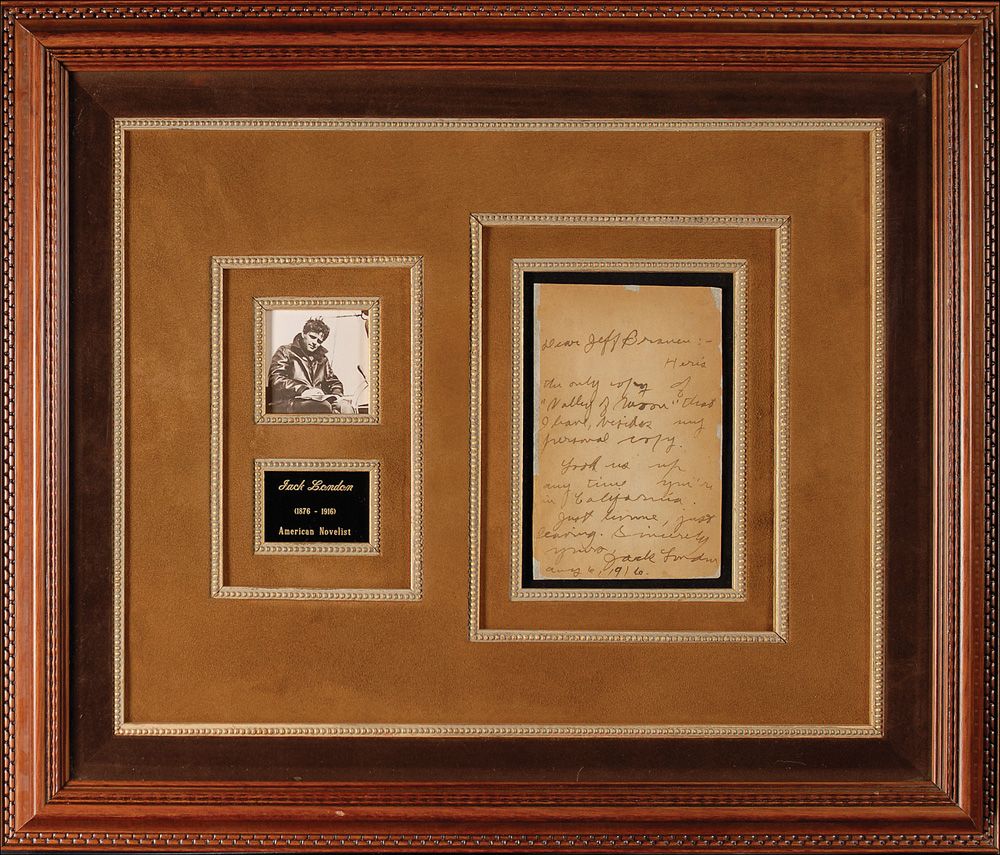 Jack London
(1876 - 1916)
American Novelist
Dear Jeff :-
Here's
the only copy of
"Valley of Moon" that
I have, besides my
personal copy.
Look us up
any time you're
in California.
Just home, just
leaving. Sincerely
yours, Jack London
Aug 6, 1916.